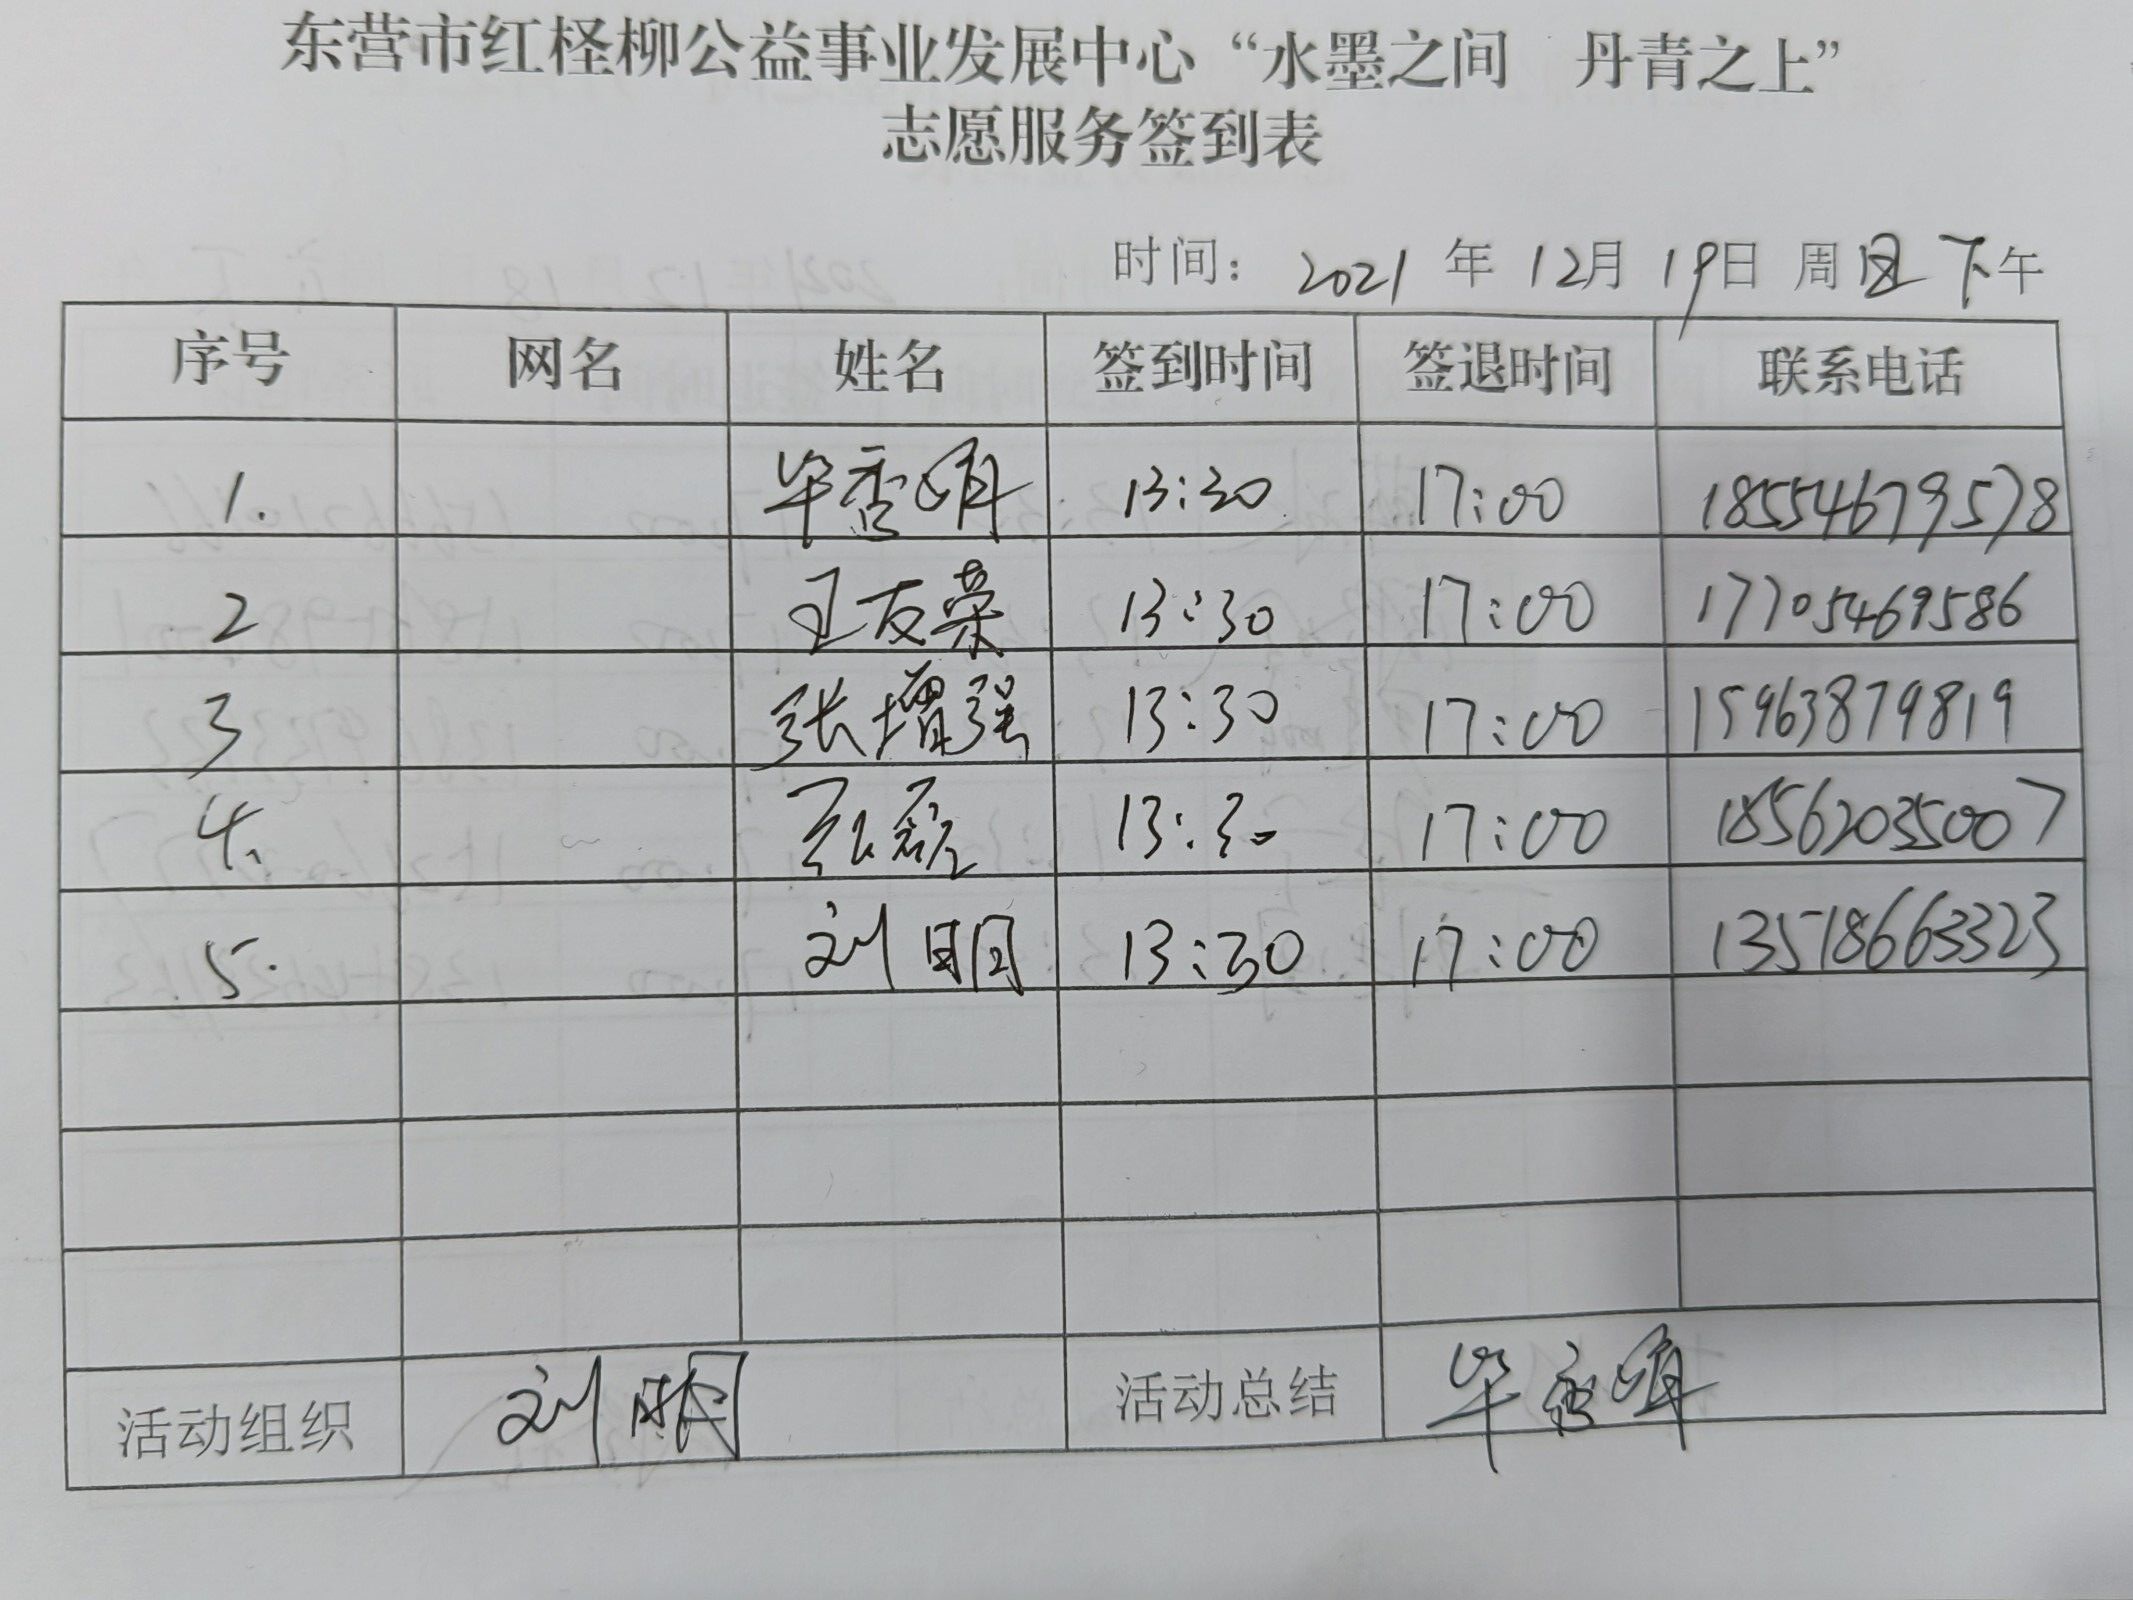 东营市红柽柳公益事业发展中心“水墨之间 丹青之上”
志愿服务签到表
时间: 2021 年 12月 19日 周日 下午
序号 网名 姓名 签到时间 签退时间 联系电话
1. 毕秀娟 13:30 17:00 18554679578
2 王友荣 13:30 17:00 17705469586
3 张增强 13:30 17:00 15963879819
4. 张磊 13:30 17:00 18562035007
5. 刘明 13:30 17:00 13518663323
活动组织 刘明 活动总结 毕秀娟